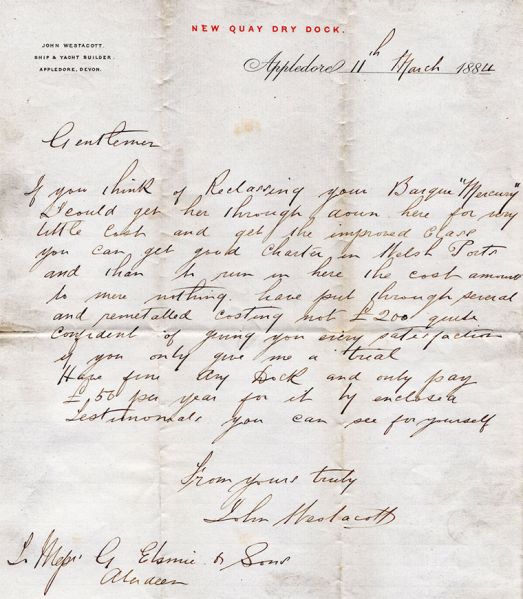 NEW QUAY DRY DOCK.
JOHN WESTACOTT.
SHIP & YACHT BUILDER.
APPLEDORE, DEVON.
Appledore 11th March 1884
Gentlemen
If you think of Reclassing your Barque "Mercury"
I could get her through down here for very
little Cost and get the improved Class
you can get good Charter in Welsh Ports
and than to run in here the cost amount
to mere nothing. have put through several
and remetalled costing not £200 quite
Confident of giving you every satisfaction
if you only give me a trial
Have fine Dry Dock and only pay
£50 per year for it by enclosed
Testimonials you can see for yourself
From yours truly
John Westacott
To Messrs G Elsmie & Sons
Aberdeen